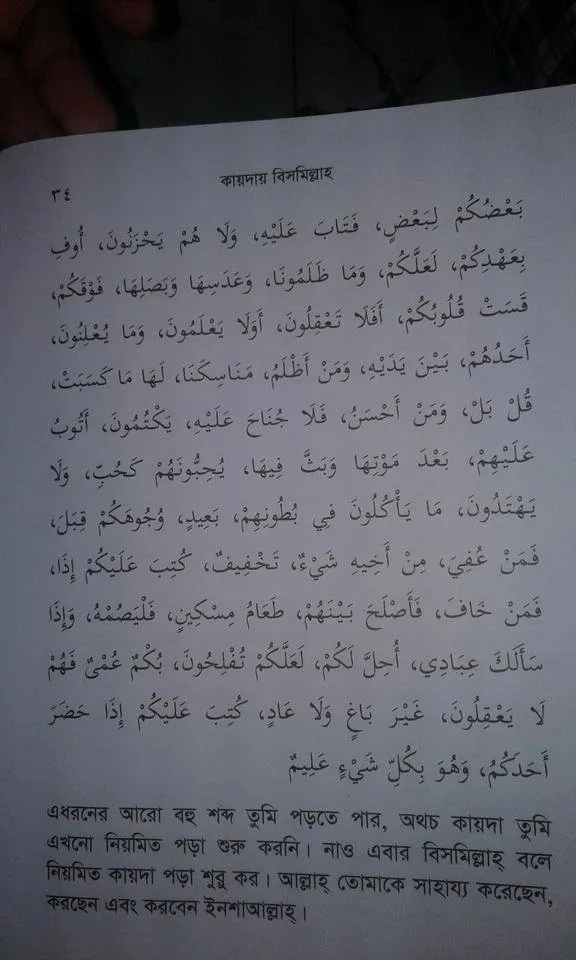 ٣٤
কায়দায় বিসমিল্লাহ
بَعْضُكُمْ لِبَعْضٍ، فَتَابَ عَلَيْهِ، وَلَا هُمْ يَحْزَنُونَ، أُوفِ
بِعَهْدِكُمْ، لَعَلَّكُمْ، وَمَا ظَلَمُونَا، وَعَدَسِهَا وَبَصَلِهَا، فَوْقَكُمْ،
قَسَتْ قُلُوبُكُمْ، أَفَلَا تَعْقِلُونَ، أَوَلَا يَعْلَمُونَ، وَمَا يُعْلِنُونَ،
أَحَدُهُمْ، بَيْنَ يَدَيْهِ، وَمَنْ أَظْلَمُ، مَنَاسِكَنَا، لَهَا مَا كَسَبَتْ،
قُلْ بَلْ، وَمَنْ أَحْسَنُ، فَلَا جُنَاحَ عَلَيْهِ، يَكْتُمُونَ، أَتُوبُ
عَلَيْهِمْ، بَعْدَ مَوْتِهَا وَبَثَّ فِيهَا، يُحِبُّونَهُمْ كَحُبِّ، وَلَا
يَهْتَدُونَ، مَا يَأْكُلُونَ فِي بُطُونِهِمْ، بَعِيدٍ، وُجُوهَكُمْ قِبَلَ،
فَمَنْ عُفِيَ، مِنْ أَخِيهِ شَيْءٌ، تَخْفِيفٌ، كُتِبَ عَلَيْكُمْ إِذَا،
فَمَنْ خَافَ، فَأَصْلَحَ بَيْنَهُمْ، طَعَامُ مِسْكِينٍ، فَلْيَصُمْهُ، وَإِذَا
سَأَلَكَ عِبَادِي، أُحِلَّ لَكُمْ، لَعَلَّكُمْ تُفْلِحُونَ، بُكْمٌ عُمْيٌ فَهُمْ
لَا يَعْقِلُونَ، غَيْرَ بَاغٍ وَلَا عَادٍ، كُتِبَ عَلَيْكُمْ إِذَا حَضَرَ
أَحَدَكُمُ، وَهُوَ بِكُلِّ شَيْءٍ عَلِيمٌ
এধরনের আরো বহু শব্দ তুমি পড়তে পার, অথচ কায়দা তুমি
এখনো নিয়মিত পড়া শুরু করনি। নাও এবার বিসমিল্লাহ্ বলে
নিয়মিত কায়দা পড়া শুরু কর। আল্লাহ্ তোমাকে সাহায্য করেছেন,
করছেন এবং করবেন ইনশাআল্লাহ্।